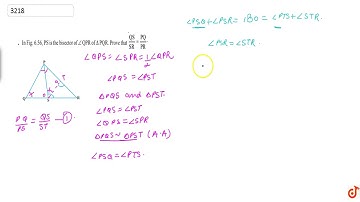 3218
In Fig. 6.56, PS is the bisector of ∠QPR of ΔPQR. Prove that QS/SR = PQ/PR
∠QPS = ∠SPR = 1/2 ∠QPR
∠PQS = ∠PST
ΔPQS and ΔPST
∠PQS = ∠PST
∠QPS = ∠SPR
ΔPQS ~ ΔPST (A·A)
∠PSQ = ∠PTS.
PQ/PS = QS/ST — ①
∠PSQ + ∠PSR = 180 = ∠PTS + ∠STR.
∠PSR = ∠STR.